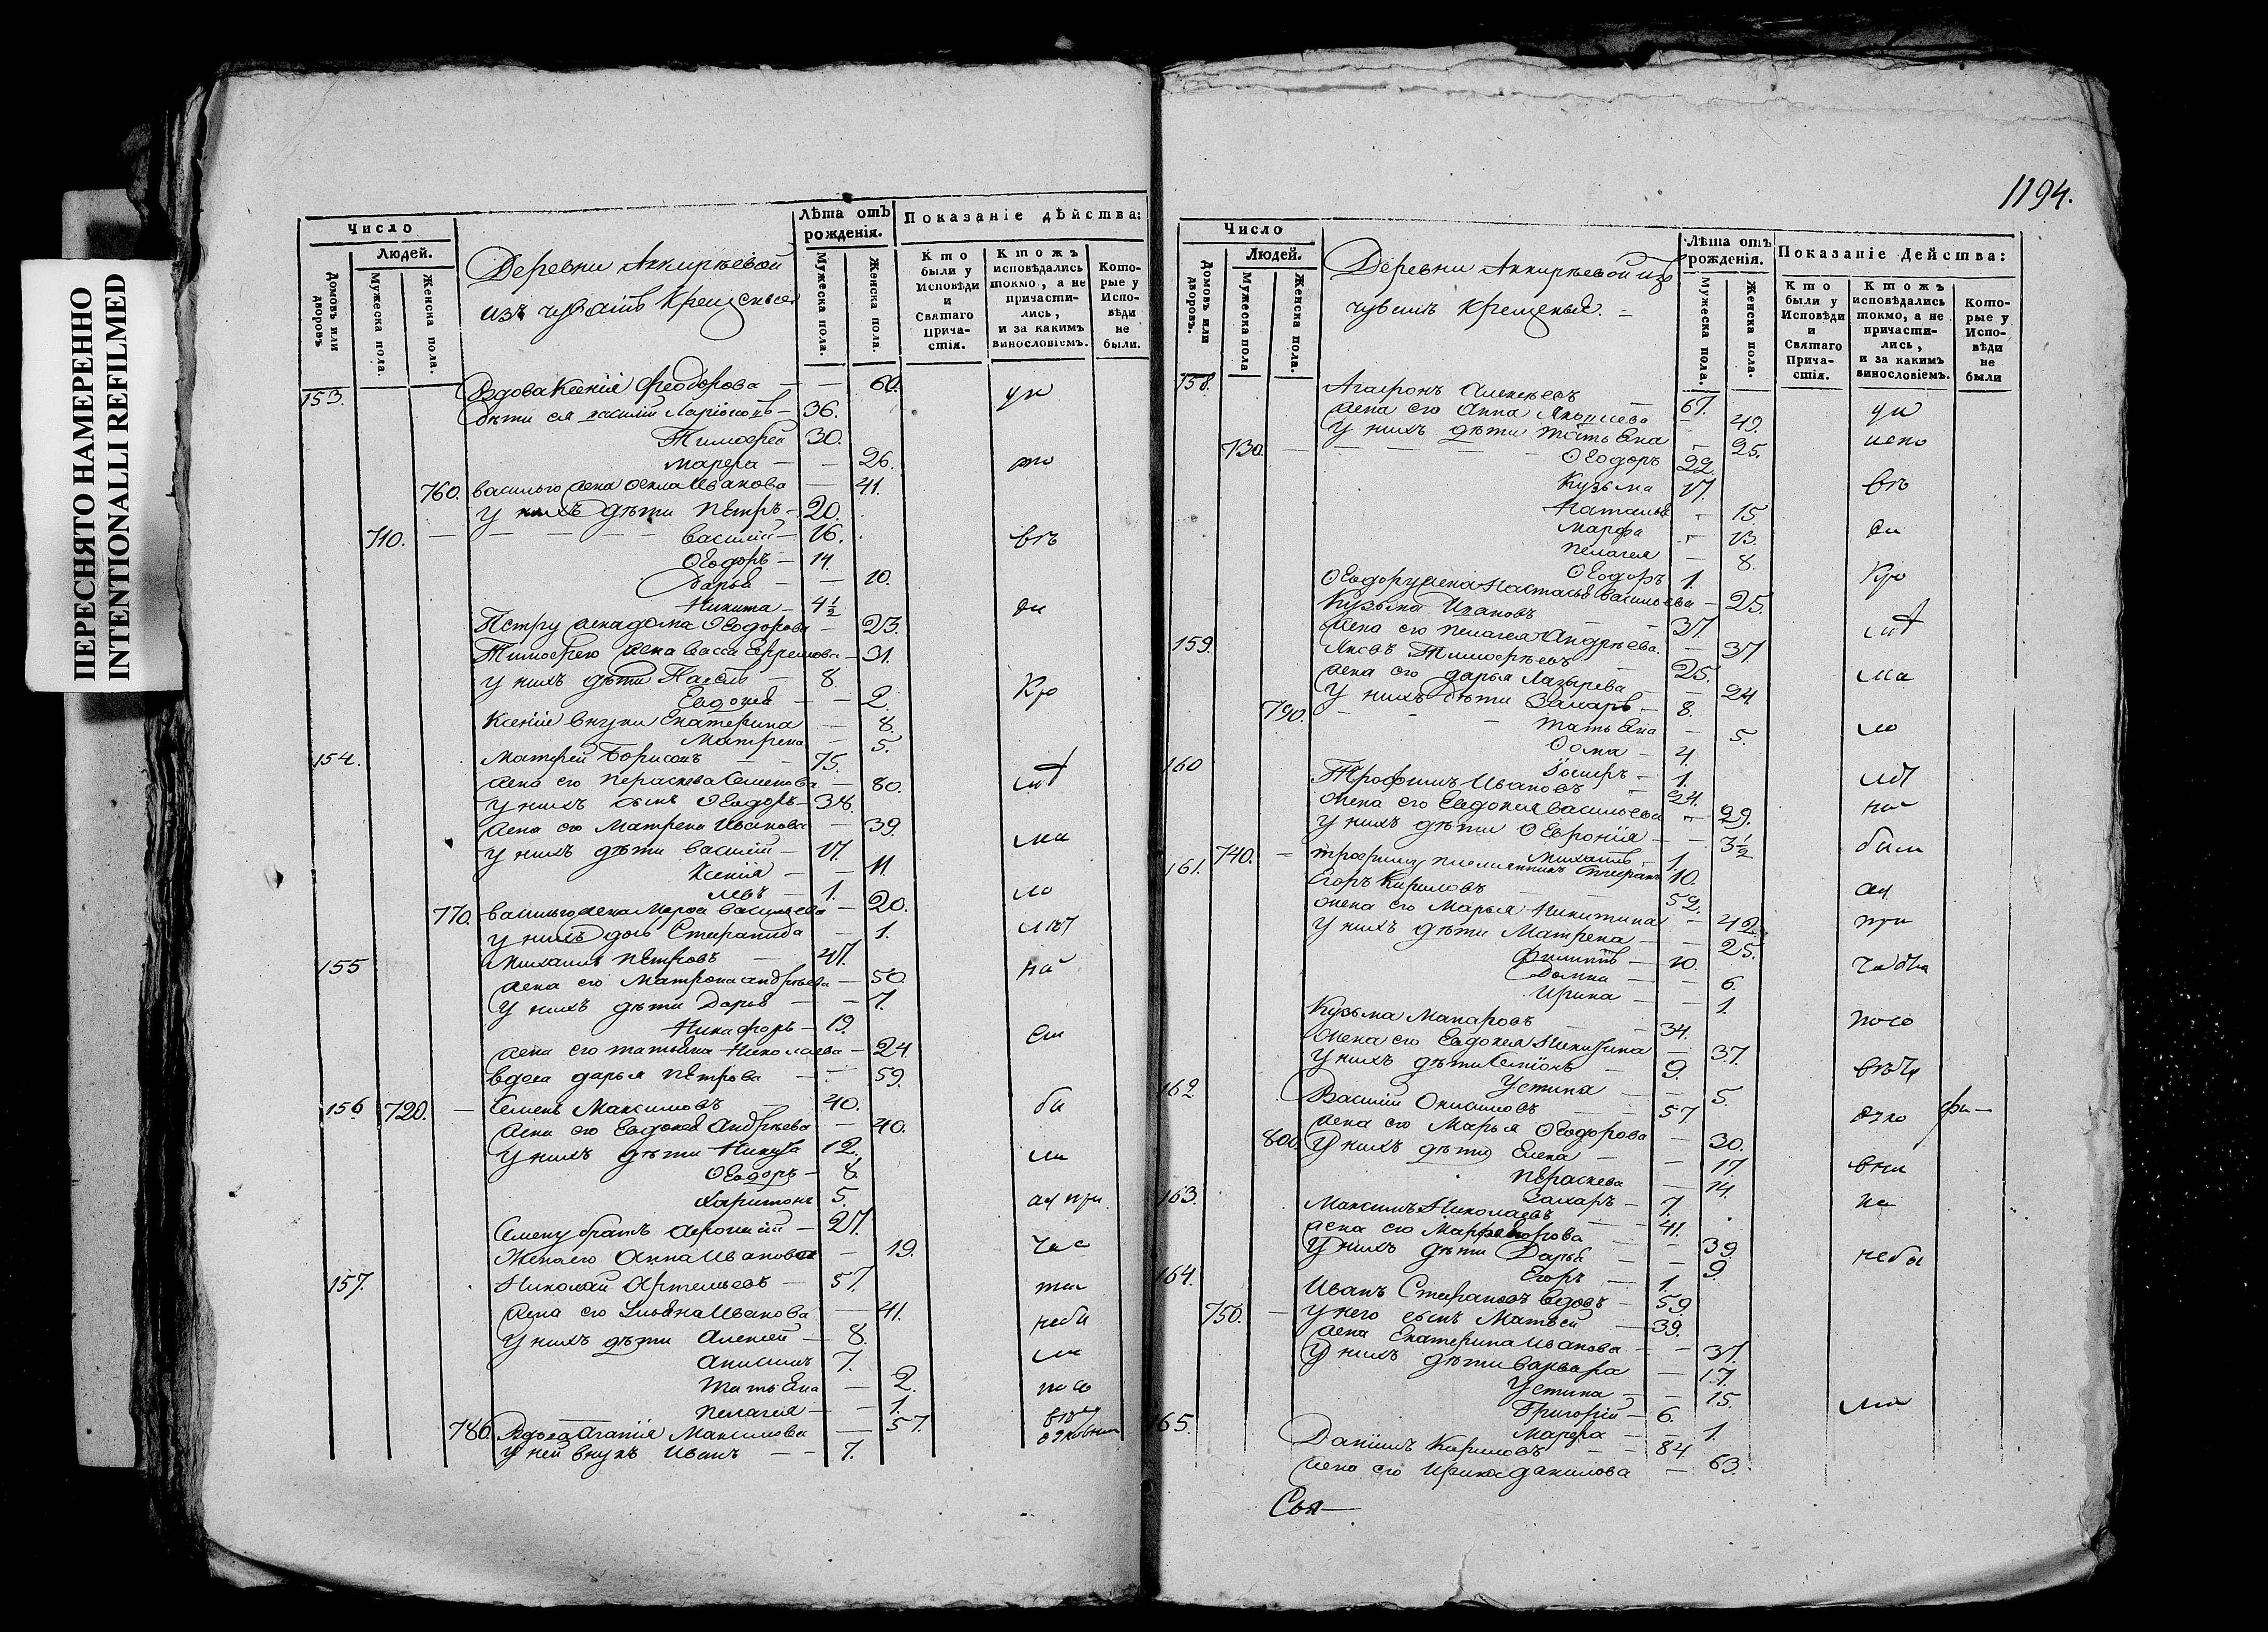 ПЕРЕСНЯТО НАМЕРЕННО
INTENTIONALLI REFILMED
Число
Людей.
Домовъ или дворовъ
Мужеска пола.
Женска пола.
Деревни Аккирѣевой
изъ чувашъ крещеныя
Лѣта отъ рожденія.
Мужеска пола.
Женска пола.
Показаніе дѣйства:
Кто были у Исповѣди и Святаго Причастія.
Ктожъ исповѣдались токмо, а не причастились, и за какимъ винословіемъ.
Которые у Исповѣди не были.
153. Вдова Ксенія Феодорова — — 60.
дѣти ея василій Ларіоновъ — 36.
Тимофей 30.
марѳа — — 26.
760. васильго жена Ѳекла Иванова — 41.
у нихъ дѣти Петръ — 20.
710. — василій — 16.
Ѳеодоръ — 14.
Дарья — — 10.
Никита — 4½
Петру жена домна Ѳеодорова — 23.
Тимофею жена васса Ефремова — 31.
у нихъ дѣти Павелъ — 8.
Евдокея — — 2.
Ксеніи внуки Екатерина — 8.
Матрена — 5.
154. Матфей Борисовъ — — 75.
жена его Пераскева Семенова — 80.
у нихъ сынъ Ѳеодоръ — 38.
жена его Матрена Иванова — 39.
у нихъ дѣти василій — 17.
Ксенія — — 11
левъ — 1.
770. васильго жена Марѳа васильева — 20.
у нихъ дочь Стефанида — 1.
155 Михаилъ Петровъ — 47.
жена его Матрона андрѣева — 50.
у нихъ дѣти Дарья — — 7.
Никифоръ — 19.
жена его татьяна Николаева — 24.
вдова дарья Петрова — — 59.
156 720. — Семенъ Максимовъ — 40.
жена его Евдокея Андрѣева — 40.
у нихъ дѣти Никита 12.
Ѳеодоръ — 8.
Харитонъ 5.
Семену братъ Афонасій — 27.
Жена его Анна Иванова — 19.
157. Николай Артемьевъ — 57.
жена его Ульяна Иванова — 41.
у нихъ дѣти Алексей — 8.
анисимъ 7.
татьяна — 2.
пелагея — — 1.
780. Вдова Агапія Максимова — 57.
у ней внукъ Иванъ — — 7.
1194.
Число
Людей.
Домовъ или дворовъ.
Мужеска пола
Женска пола.
Деревни Аккирѣевой изъ
чувашъ крещеныя. =
Лѣта отъ рожденія.
Мужеска пола.
Женска пола.
Показаніе Дейсmва:
Кто были у Исповѣди и Святаго Причастія.
Ктожъ исповѣдались токмо, а не причастились, и за какимъ винословіемъ.
Которые у Исповѣди не были
158. Агафонъ Алексеевъ — 67.
жена его Анна — 49.
У нихъ дѣти татьяна — 25.
730. Ѳеодоръ 22.
Кузьма 17.
Наталья — 15.
Марфа — 13.
пелагея — 8.
Ѳеодоръ 1.
Ѳеодору жена Настасья васильева — 25.
Кузьма Ивановъ — 37.
жена его пелагея Андрѣева — 37.
159. Яковъ Тимофѣевъ — 25.
жена его дарья Лазырева — 24
У нихъ дѣти Захаръ — 8.
790. татьяна — 5.
Ѳома — 4.
1.
160 Трофимъ Ивановъ — 24.
жена его Евдокея васильева — 29.
У нихъ дѣти — 3½
740. — Михаилъ — 1.
трофиму племянникъ Стефанъ 10.
161. Егоръ Кириловъ — 52.
жена его Марья Никитина — 42
У нихъ дѣти Матрена — 25.
Филиппъ — 10.
Домна — — 6.
Ирина — — 1.
Кузьма Макаровъ — 34.
жена его Евдокея Никитина — 37.
У нихъ дѣти — 9.
Устина — — 5.
162 Василій Онисимовъ — 57.
жена его Марья Ѳеодорова — 30.
800 У нихъ дѣти Елена — — 17.
Пераскева — 14.
Захаръ — 7.
163. Максимъ Николаевъ — 41.
жена его — 39
У нихъ дѣти Дарья — — 9.
Егоръ — 1.
164. Иванъ Стефановъ вдовъ — 59.
750. — у него сынъ Матвей — 39.
жена Екатерина Иванова — — 37.
У нихъ дѣти варвара — 17.
Устина — — 15.
Григорій — 6.
Марѳа — — 1.
165. Данилъ Кириловъ — — 84.
жена его Ирина данилова — 63.